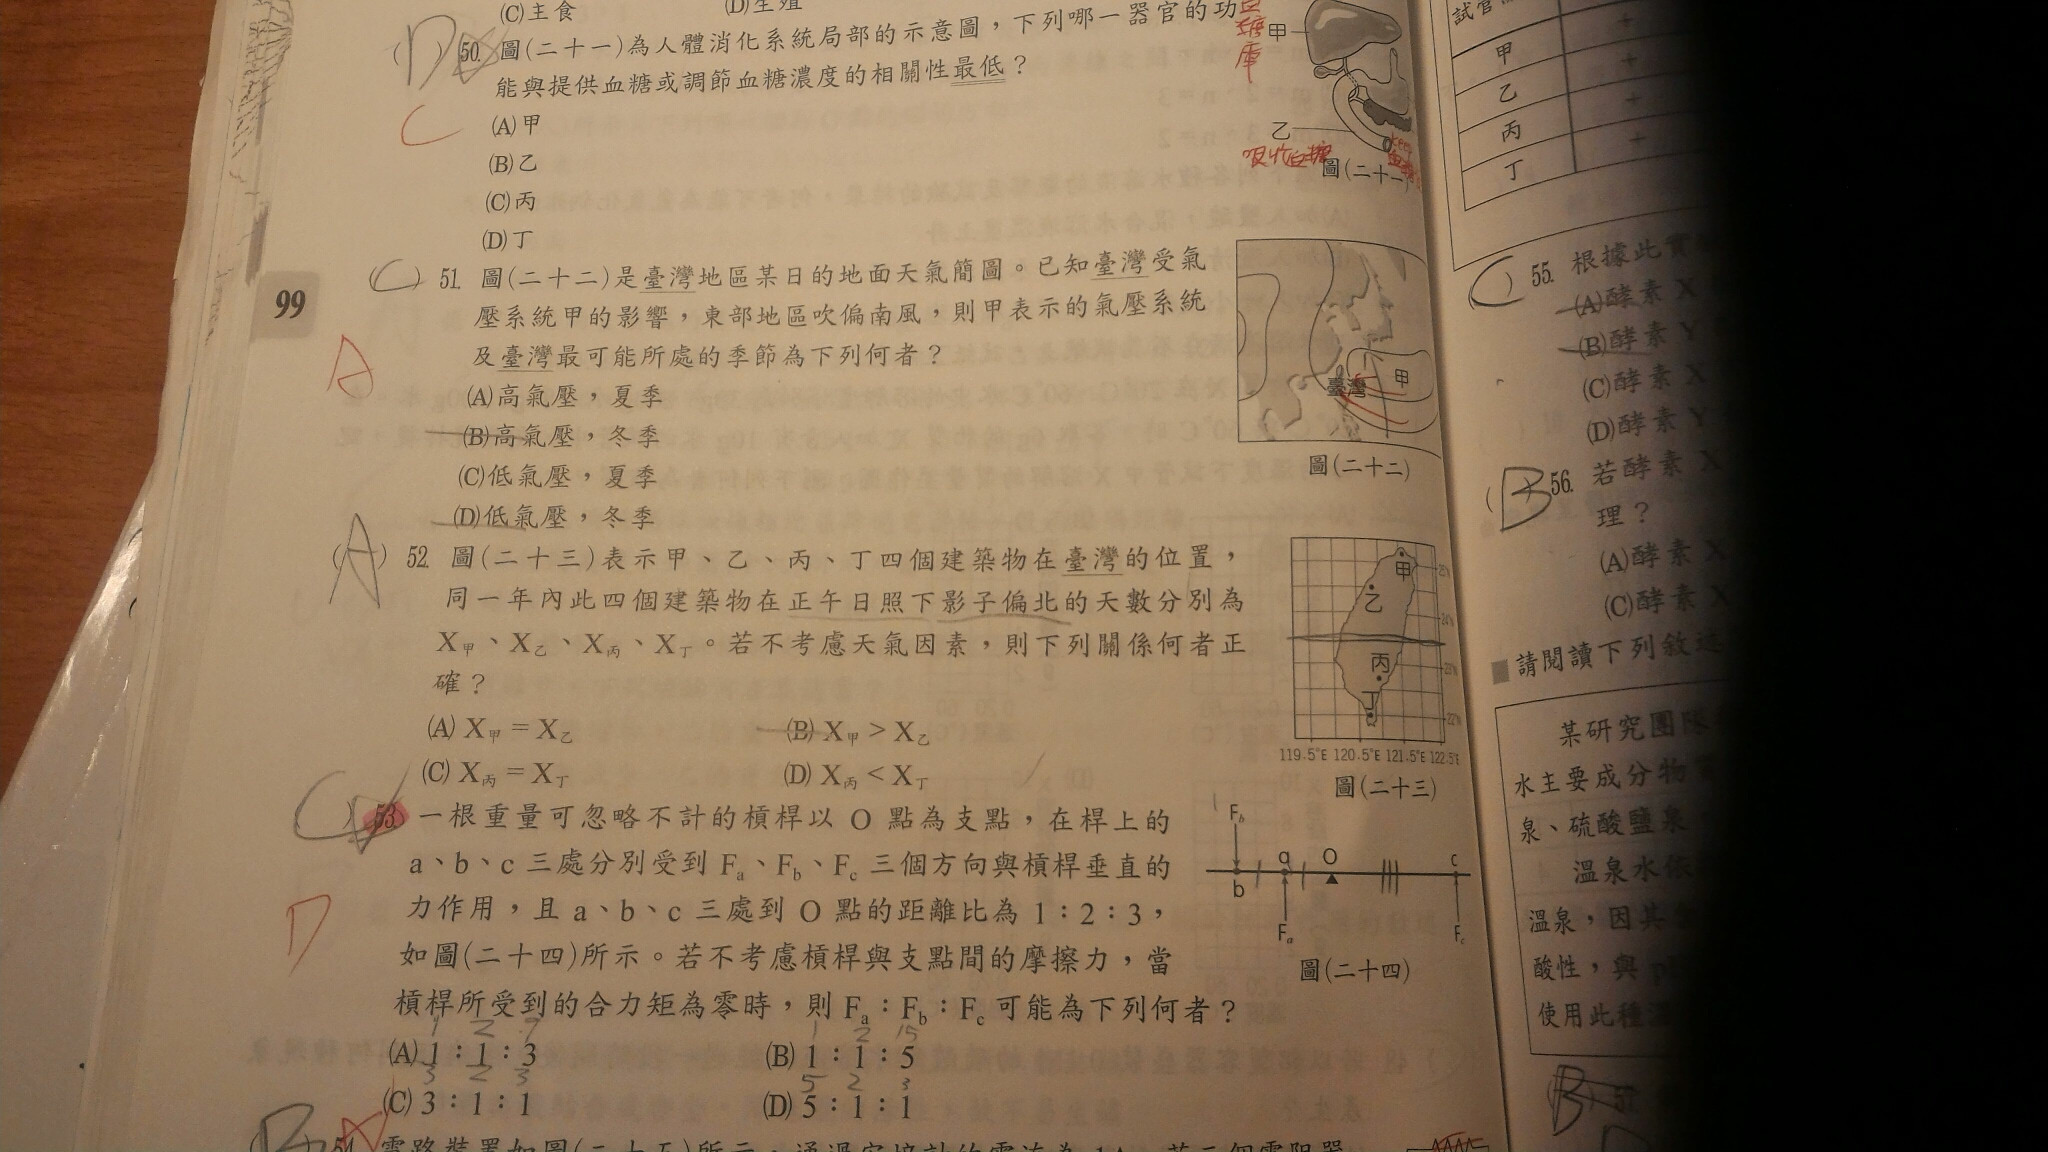 (C)主食
(D)生殖
50. 圖(二十一)為人體消化系統局部的示意圖，下列哪一器官的功
能與提供血糖或調節血糖濃度的相關性最低？
C
(A)甲
(B)乙
(C)丙
(D)丁
甲
乙
吸收血糖
圖(二十一)
99
(C) 51. 圖(二十二)是臺灣地區某日的地面天氣簡圖。已知臺灣受氣
壓系統甲的影響，東部地區吹偏南風，則甲表示的氣壓系統
及臺灣最可能所處的季節為下列何者？
A
(A)高氣壓，夏季
(B)高氣壓，冬季
(C)低氣壓，夏季
(D)低氣壓，冬季
臺灣
甲
圖(二十二)
(A) 52. 圖(二十三)表示甲、乙、丙、丁四個建築物在臺灣的位置，
同一年內此四個建築物在正午日照下影子偏北的天數分別為
X甲、X乙、X丙、X丁。若不考慮天氣因素，則下列關係何者正
確？
(A) X甲＝X乙
(B) X甲＞X乙
(C) X丙＝X丁
(D) X丙＜X丁
甲
乙
丙
丁
119.5°E 120.5°E 121.5°E 122.5°E
圖(二十三)
(C) 53. 一根重量可忽略不計的槓桿以 O 點為支點，在桿上的
a、b、c 三處分別受到 Fa、Fb、Fc 三個方向與槓桿垂直的
力作用，且 a、b、c 三處到 O 點的距離比為 1：2：3，
如圖(二十四)所示。若不考慮槓桿與支點間的摩擦力，當
槓桿所受到的合力矩為零時，則 Fa：Fb：Fc 可能為下列何者？
D
(A) 1：1：3
(B) 1：1：5
(C) 3：1：1
(D) 5：1：1
Fb
a O c
b
Fa Fc
圖(二十四)
試管
甲 +
乙 +
丙 +
丁 +
55. 根據此實
(A)酵素 X
(B)酵素 Y
(C)酵素 X
(D)酵素 Y
(B) 56. 若酵素 X
理？
(A)酵素 X
(C)酵素 X
請閱讀下列敘述
某研究團隊
水主要成分物
泉、硫酸鹽泉
溫泉水依
溫泉，因其
酸性，與 p
使用此種溫